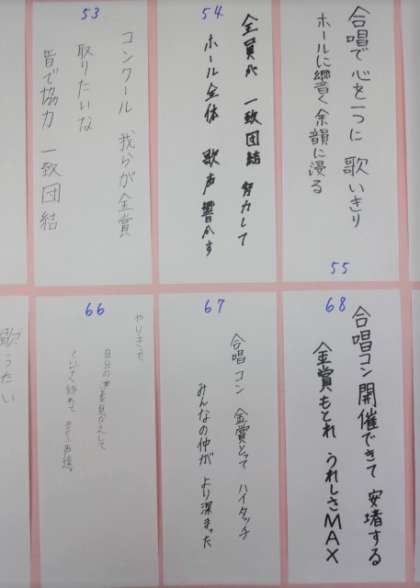 53
コンクール 我らが金賞
取りたいな
皆で協力 一致団結
54
全員が 一致団結 努力して
ホール全体 歌声響かす
合唱で 心を一つに 歌いきり
ホールに響く余韻に浸る
55
歌うたい
66
やりきった
67
合唱コン 金賞とって ハイタッチ
みんなの仲が より深まった
68
合唱コン 開催できて 安堵する
金賞もとれ うれしさMAX